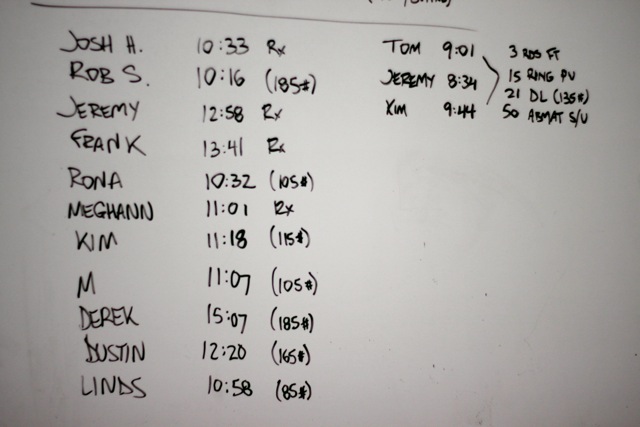 JOSH H. 10:33 Rx
ROB S. 10:16 (185#)
JEREMY 12:58 Rx
FRANK 13:41 Rx
RONA 10:32 (105#)
MEGHANN 11:01 Rx
KIM 11:18 (115#)
M 11:07 (105#)
DEREK 15:07 (185#)
DUSTIN 12:20 (165#)
LINDS 10:58 (85#)
TOM 9:01
JEREMY 8:34
KIM 9:44
3 RDS FT
15 RING PU
21 DL (135#)
50 ABMAT S/U